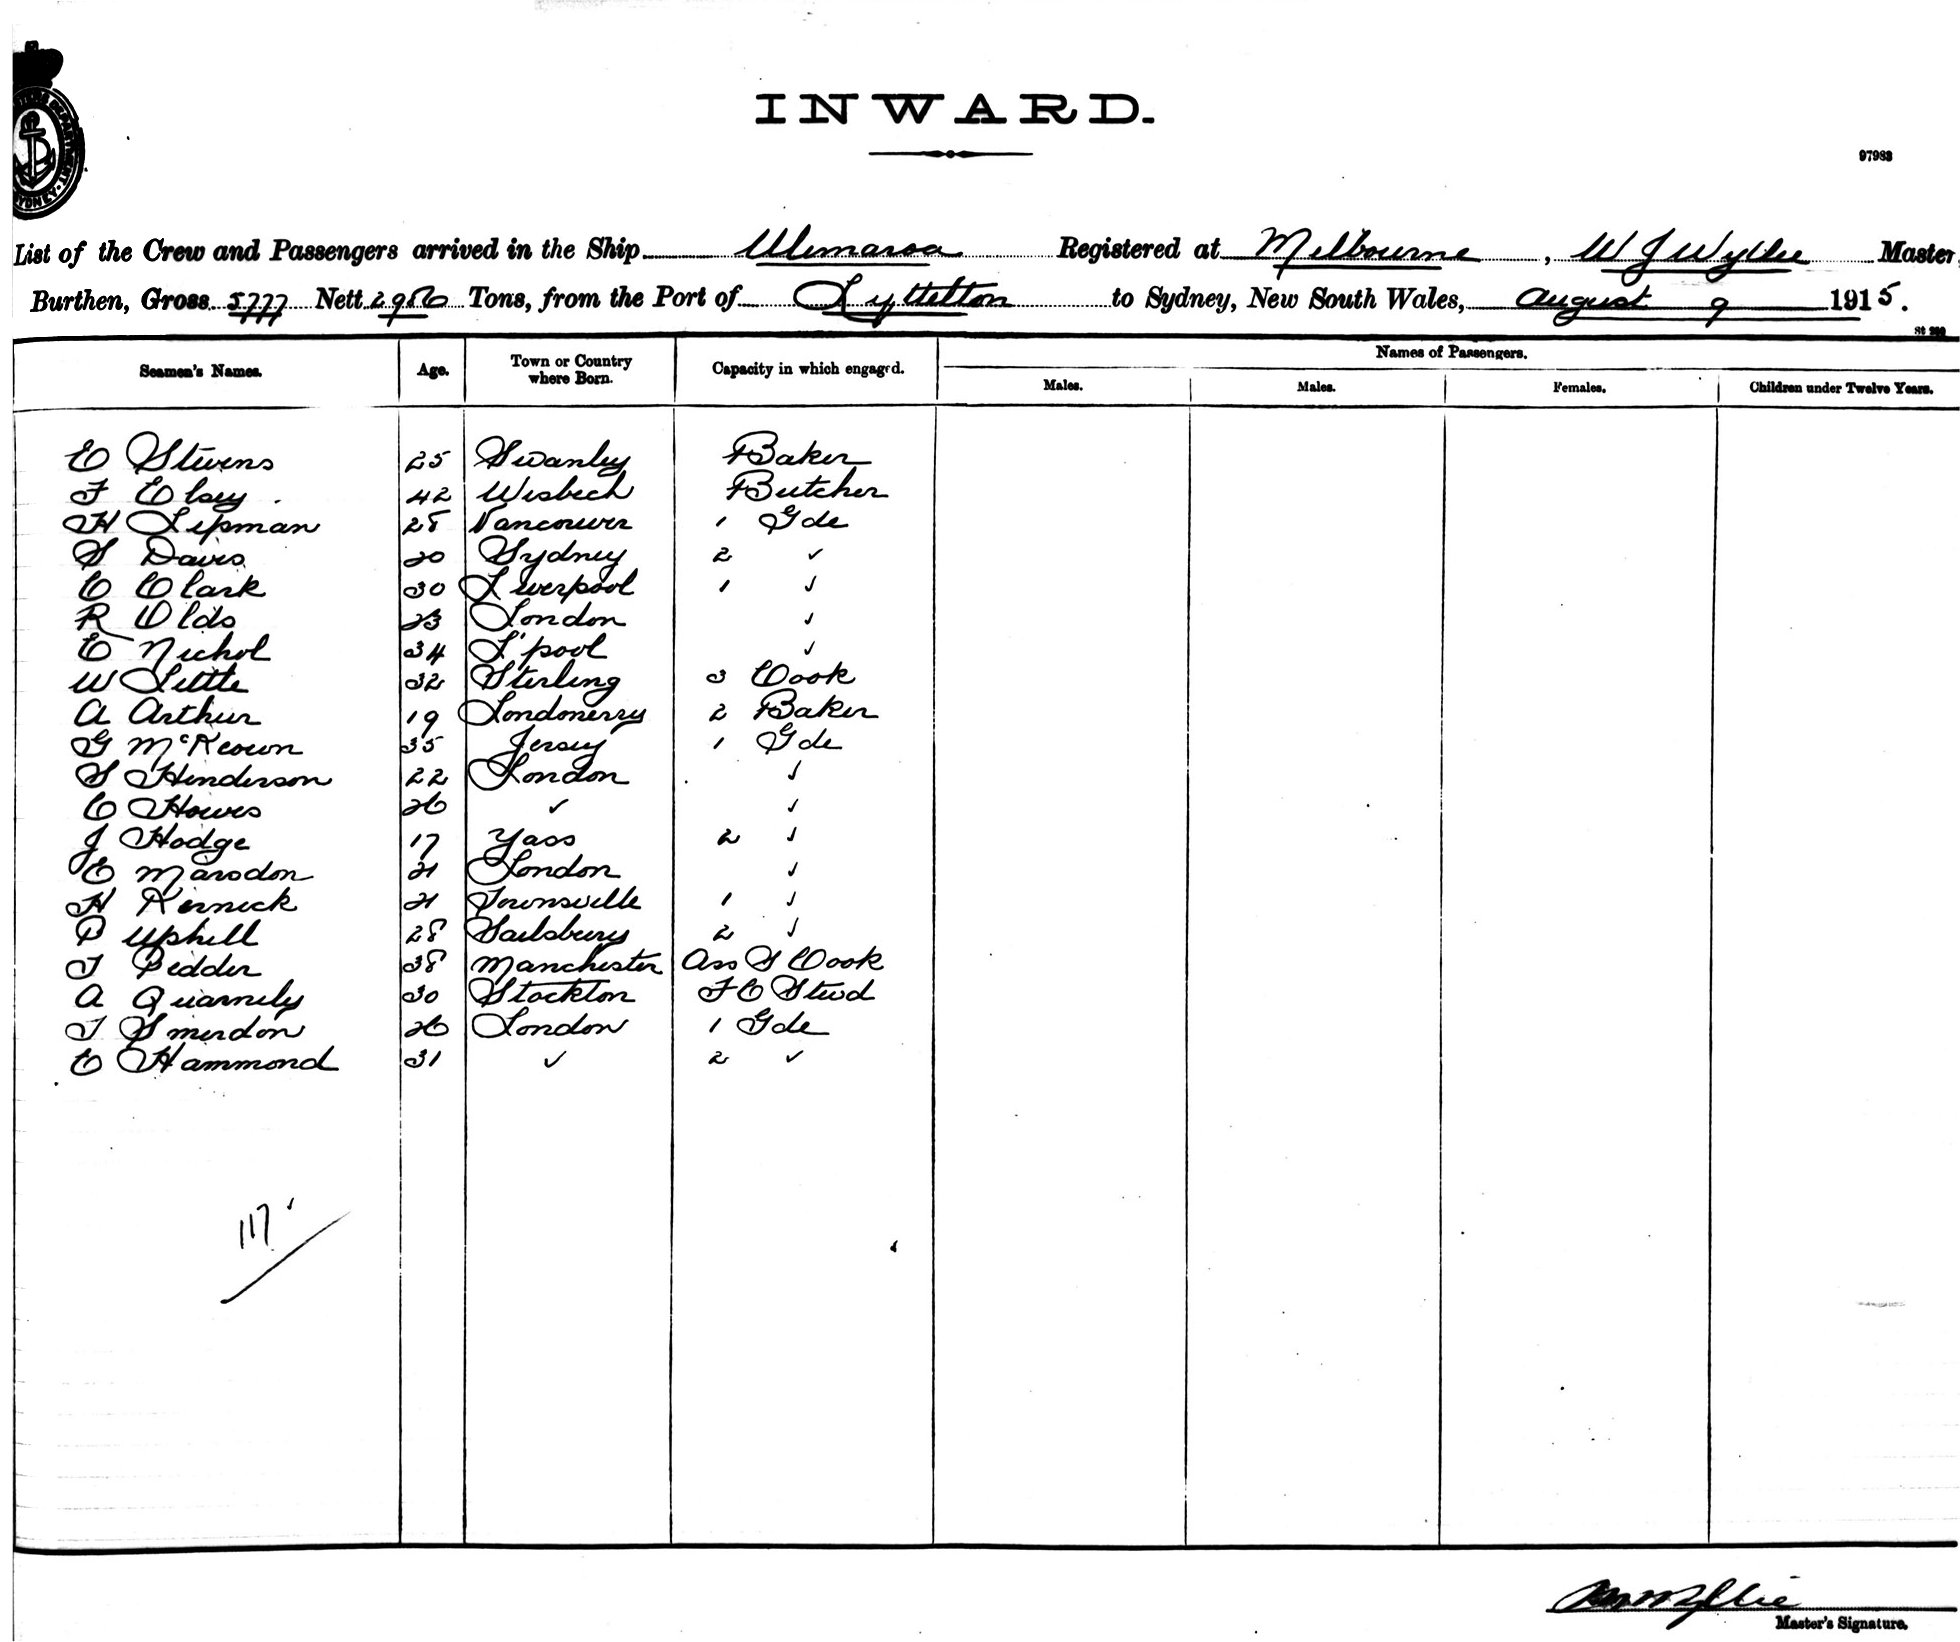 CUSTOMS DEPARTMENT · SYDNEY ·
INWARD.
97983
List of the Crew and Passengers arrived in the Ship Ulimaroa Registered at Melbourne, W J Wyllie Master
Burthen, Gross 5777 Nett 2986 Tons, from the Port of Lyttelton to Sydney, New South Wales, August 9 1915.
Seamen's Names. Age. Town or Country where Born. Capacity in which engaged. Names of Passengers.
Males. Males. Females. Children under Twelve Years.
E Stevens 25 Swanley Baker
F Elsey 42 Wisbech Butcher
H Lipman 28 Vancouver 1 Gde
S Davis 20 Sydney 2 ✓
C Clark 30 Liverpool 1 ✓
R Olds 23 London ✓
E Nichol 34 L'pool ✓
W Little 32 Sterling 3 Cook
A Arthur 19 Londonerry 2 Baker
G McKeown 35 Jersey 1 Gde
S Henderson 22 London ✓
C Howes 26 ✓ ✓
J Hodge 17 Yass 2 ✓
E Marsdon 21 London ✓
H Kernick 21 Townsville 1 ✓
P Uphill 28 Sailsbury 2 ✓
T Pedder 38 Manchester Ass S Cook
A Quarmly 30 Stockton F C Stwd
T Smerdon 26 London 1 Gde
E Hammond 31 ✓ 2 ✓
117
Master's Signature.